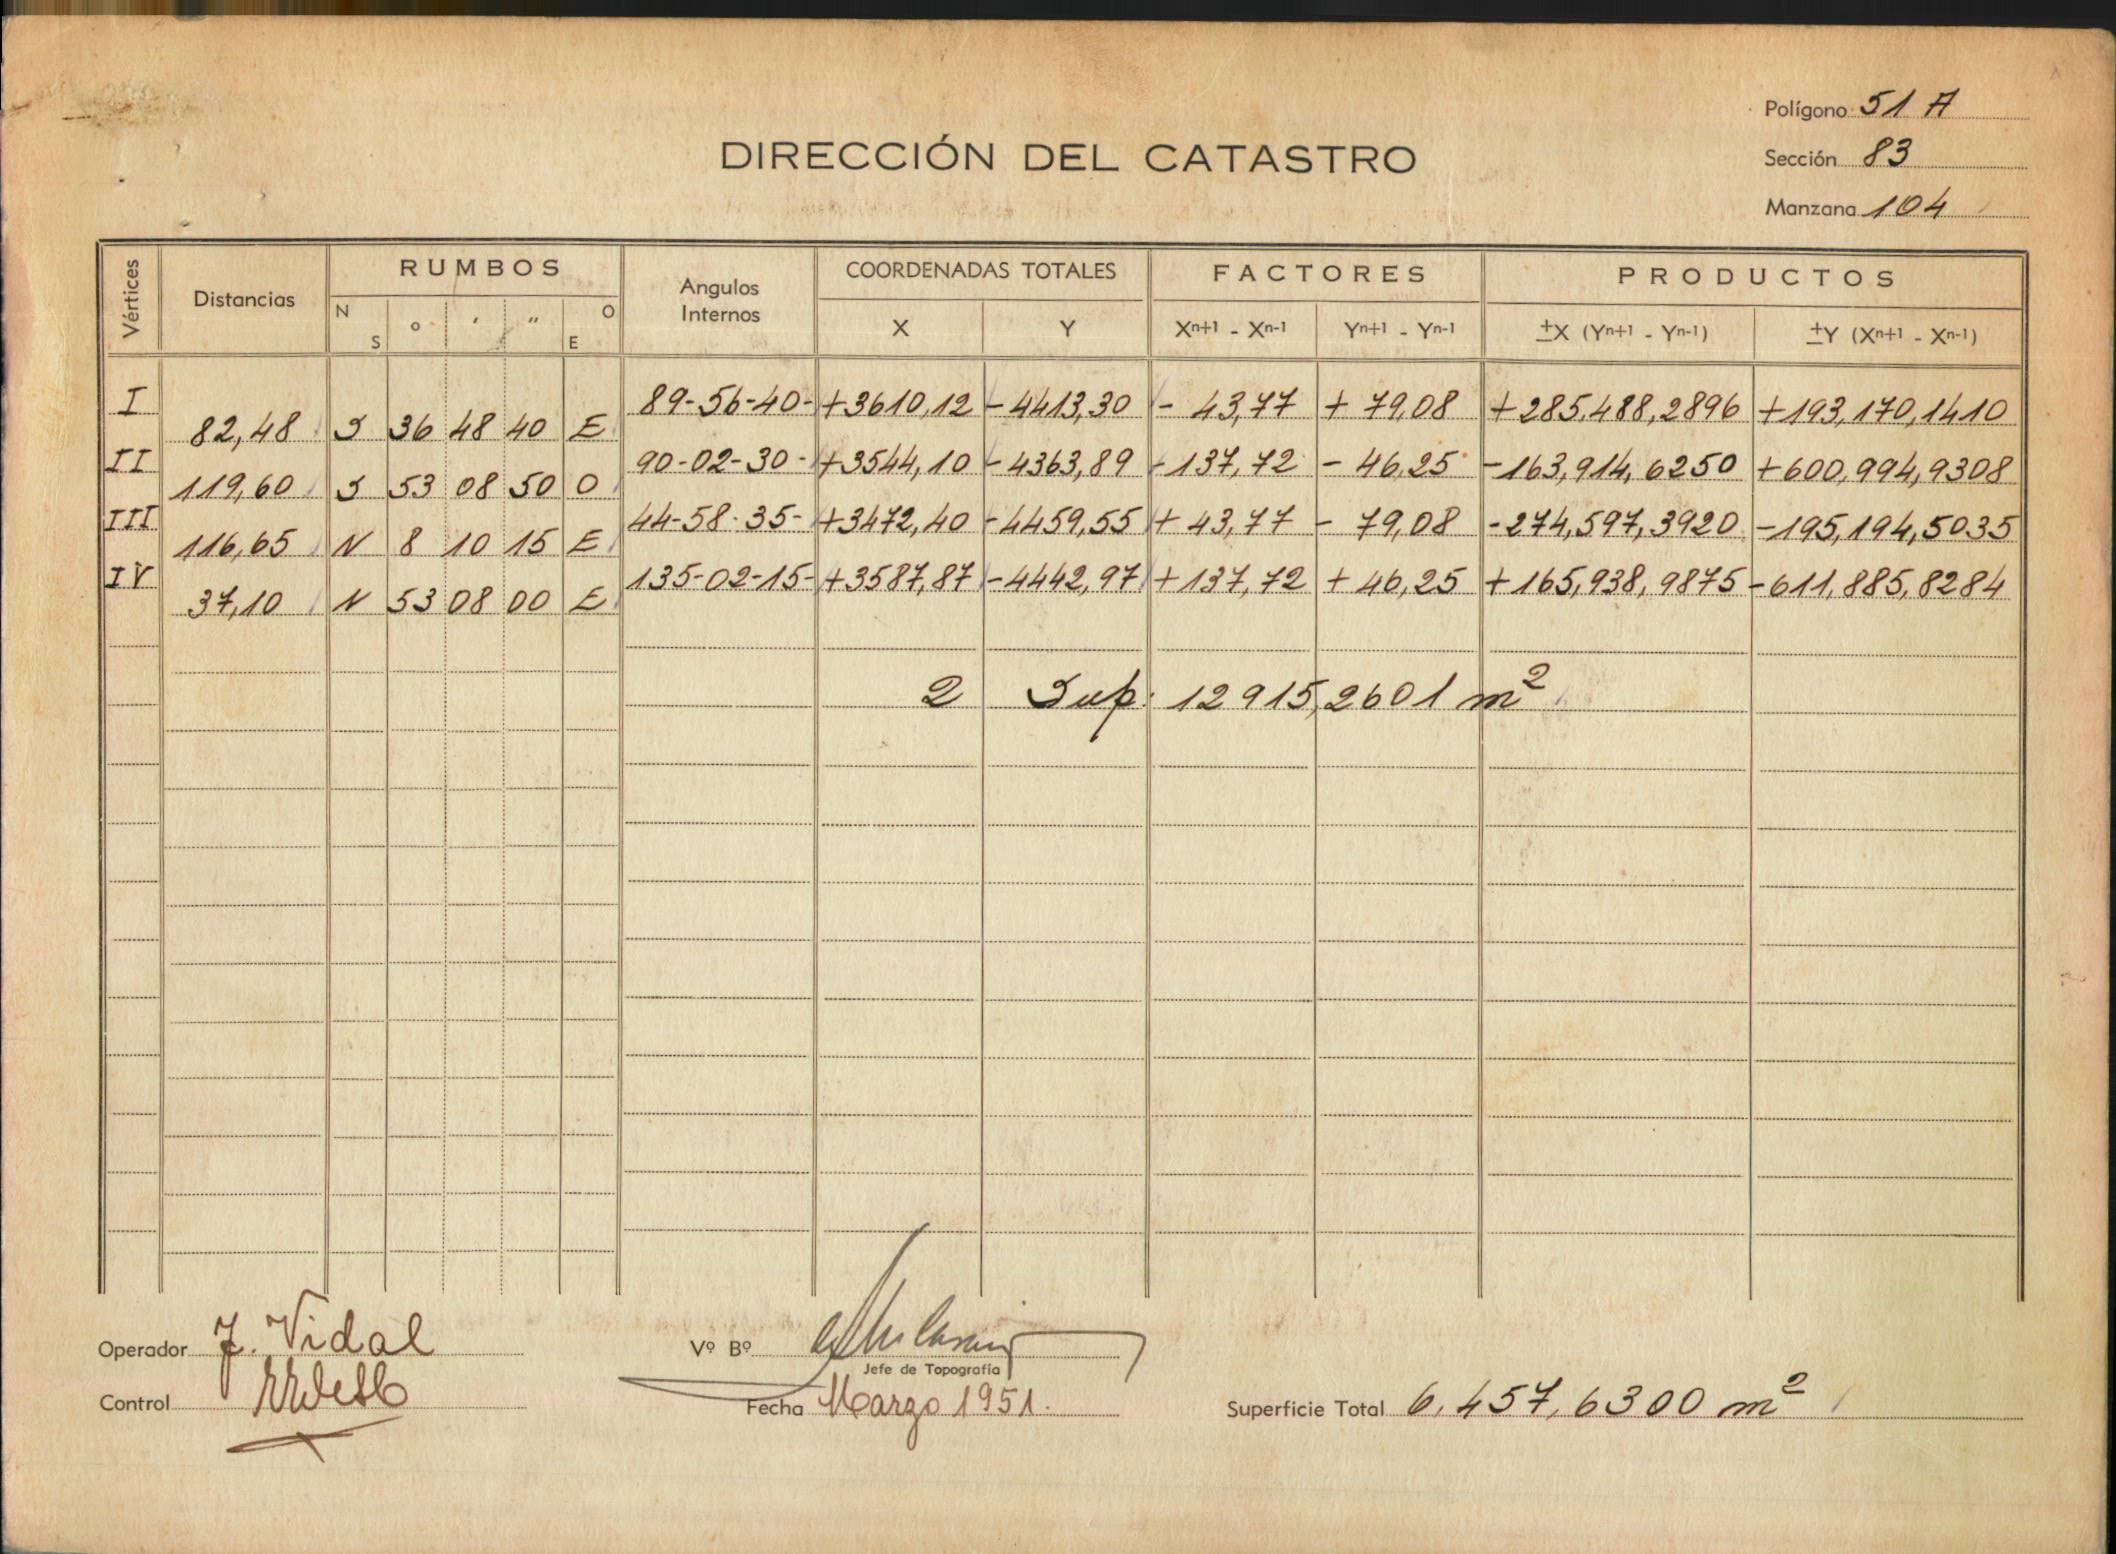 Polígono 51 A
DIRECCIÓN DEL CATASTRO
Sección 83
Manzana 104
Vértices Distancias RUMBOS N S o ' " O E Angulos Internos COORDENADAS TOTALES X Y FACTORES Xn+1 - Xn-1 Yn+1 - Yn-1 PRODUCTOS ±X (Yn+1 - Yn-1) ±Y (Xn+1 - Xn-1)
I 89-56-40- +3610,12 -4413,30 - 43,77 + 79,08 +285,488,2896 +193,170,1410
82,48 S 36 48 40 E
II 90-02-30- +3544,10 -4363,89 -137,72 - 46,25 -163,914,6250 +600,994,9308
119,60 S 53 08 50 O
III 44-58-35- +3472,40 -4459,55 + 43,77 - 79,08 -274,597,3920 -195,194,5035
116,65 N 8 10 15 E
IV 135-02-15- +3587,87 -4442,97 +137,72 + 46,25 +165,938,9875 -611,885,8284
37,10 N 53 08 00 E
2 Sup: 12915,2601 m²
Operador J. Vidal
Vº Bº
Jefe de Topografía
Control
Fecha Marzo 1951.
Superficie Total 6,457,6300 m²